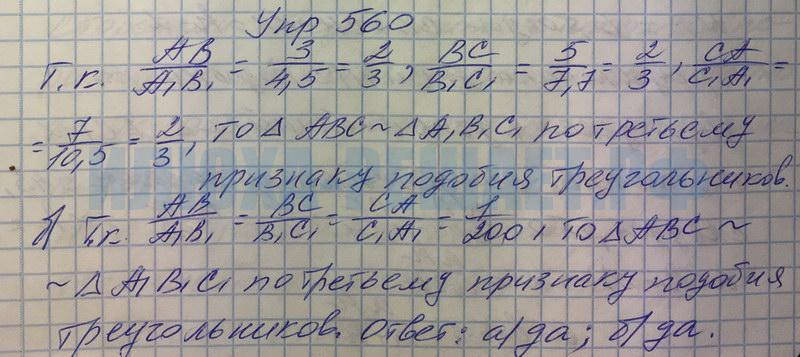 Упр 560
Т.к. AB/A₁B₁ = 3/4,5 = 2/3, BC/B₁C₁ = 5/7,7 = 2/3, CA/C₁A₁ =
= 7/10,5 = 2/3, то Δ ABC ~ Δ A₁B₁C₁ по третьему
признаку подобия треугольников.
б) Т.к. AB/A₁B₁ = BC/B₁C₁ = CA/C₁A₁ = 1/200, то Δ ABC ~
~ Δ A₁B₁C₁ по третьему признаку подобия
треугольников. Ответ: а) да; б) да.